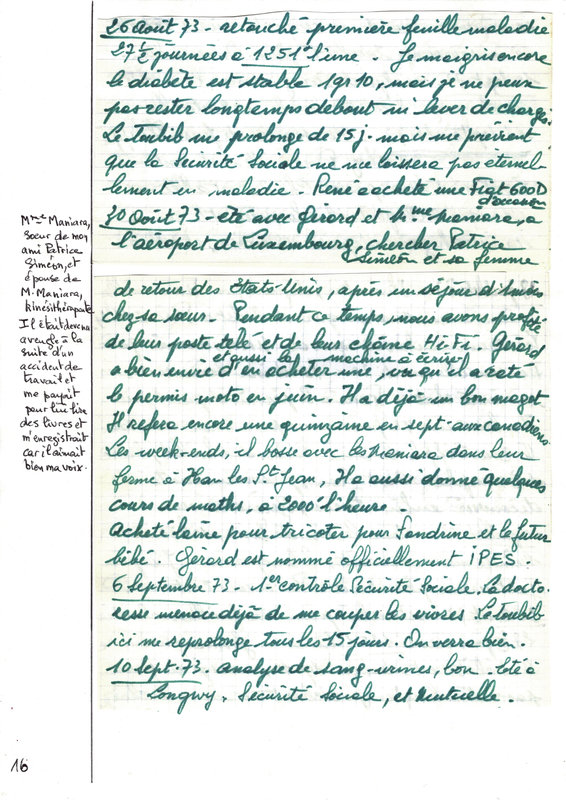 26 Août 73 - retouché première feuille maladie
27 1/2 journées à 1251f l'une. Je maigris encore
le diabète est stable 1gr10, mais je ne peux
pas rester longtemps debout ni lever de charge.
Le toubib me prolonge de 15 j. mais me prévient
que la Sécurité Sociale ne me laissera pas éternel-
lement en maladie. René a acheté une Fiat 600D
d'occasion
30 Août 73 - été avec Gérard et Mme Maniara, à
l'aéroport de Luxembourg, chercher Patrice
Siméon et sa femme
de retour des Etats-Unis, après un séjour d'1 mois
chez sa sœur. Pendant ce temps, nous avons profité
de leur poste télé et de leur chaîne Hi-Fi. Gérard
et aussi la machine à écrire!
a bien envie d'en acheter une, vu qu'il a raté
le permis moto en juin. Il a déjà un bon magot
Il refera encore une quinzaine en sept. aux canadiens
Les week-ends, il bosse avec les Maniara dans leur
ferme à Han les St Jean, Il a aussi donné quelques
cours de maths, à 2000f l'heure.
Acheté laine pour tricoter pour Sandrine et le futur
bébé. Gérard est nommé officiellement IPES.
6 Septembre 73 - 1er contrôle Sécurité Sociale, La docto-
resse menace déjà de me couper les vivres. Le toubib
ici me reprolonge tous les 15 jours. On verra bien.
10 Sept. 73. analyse de sang-urines, bon. Eté à
Longwy, Sécurité Sociale, et Mutuelle.
Mme Maniara,
sœur de mon
ami Patrice
Siméon, et
épouse de
M. Maniara,
kinésithérapeute
Il était devenu
aveugle à la
suite d'un
accident de
travail et
me payait
pour lui lire
des livres et
m'enregistrait
car il aimait
bien ma voix.
16